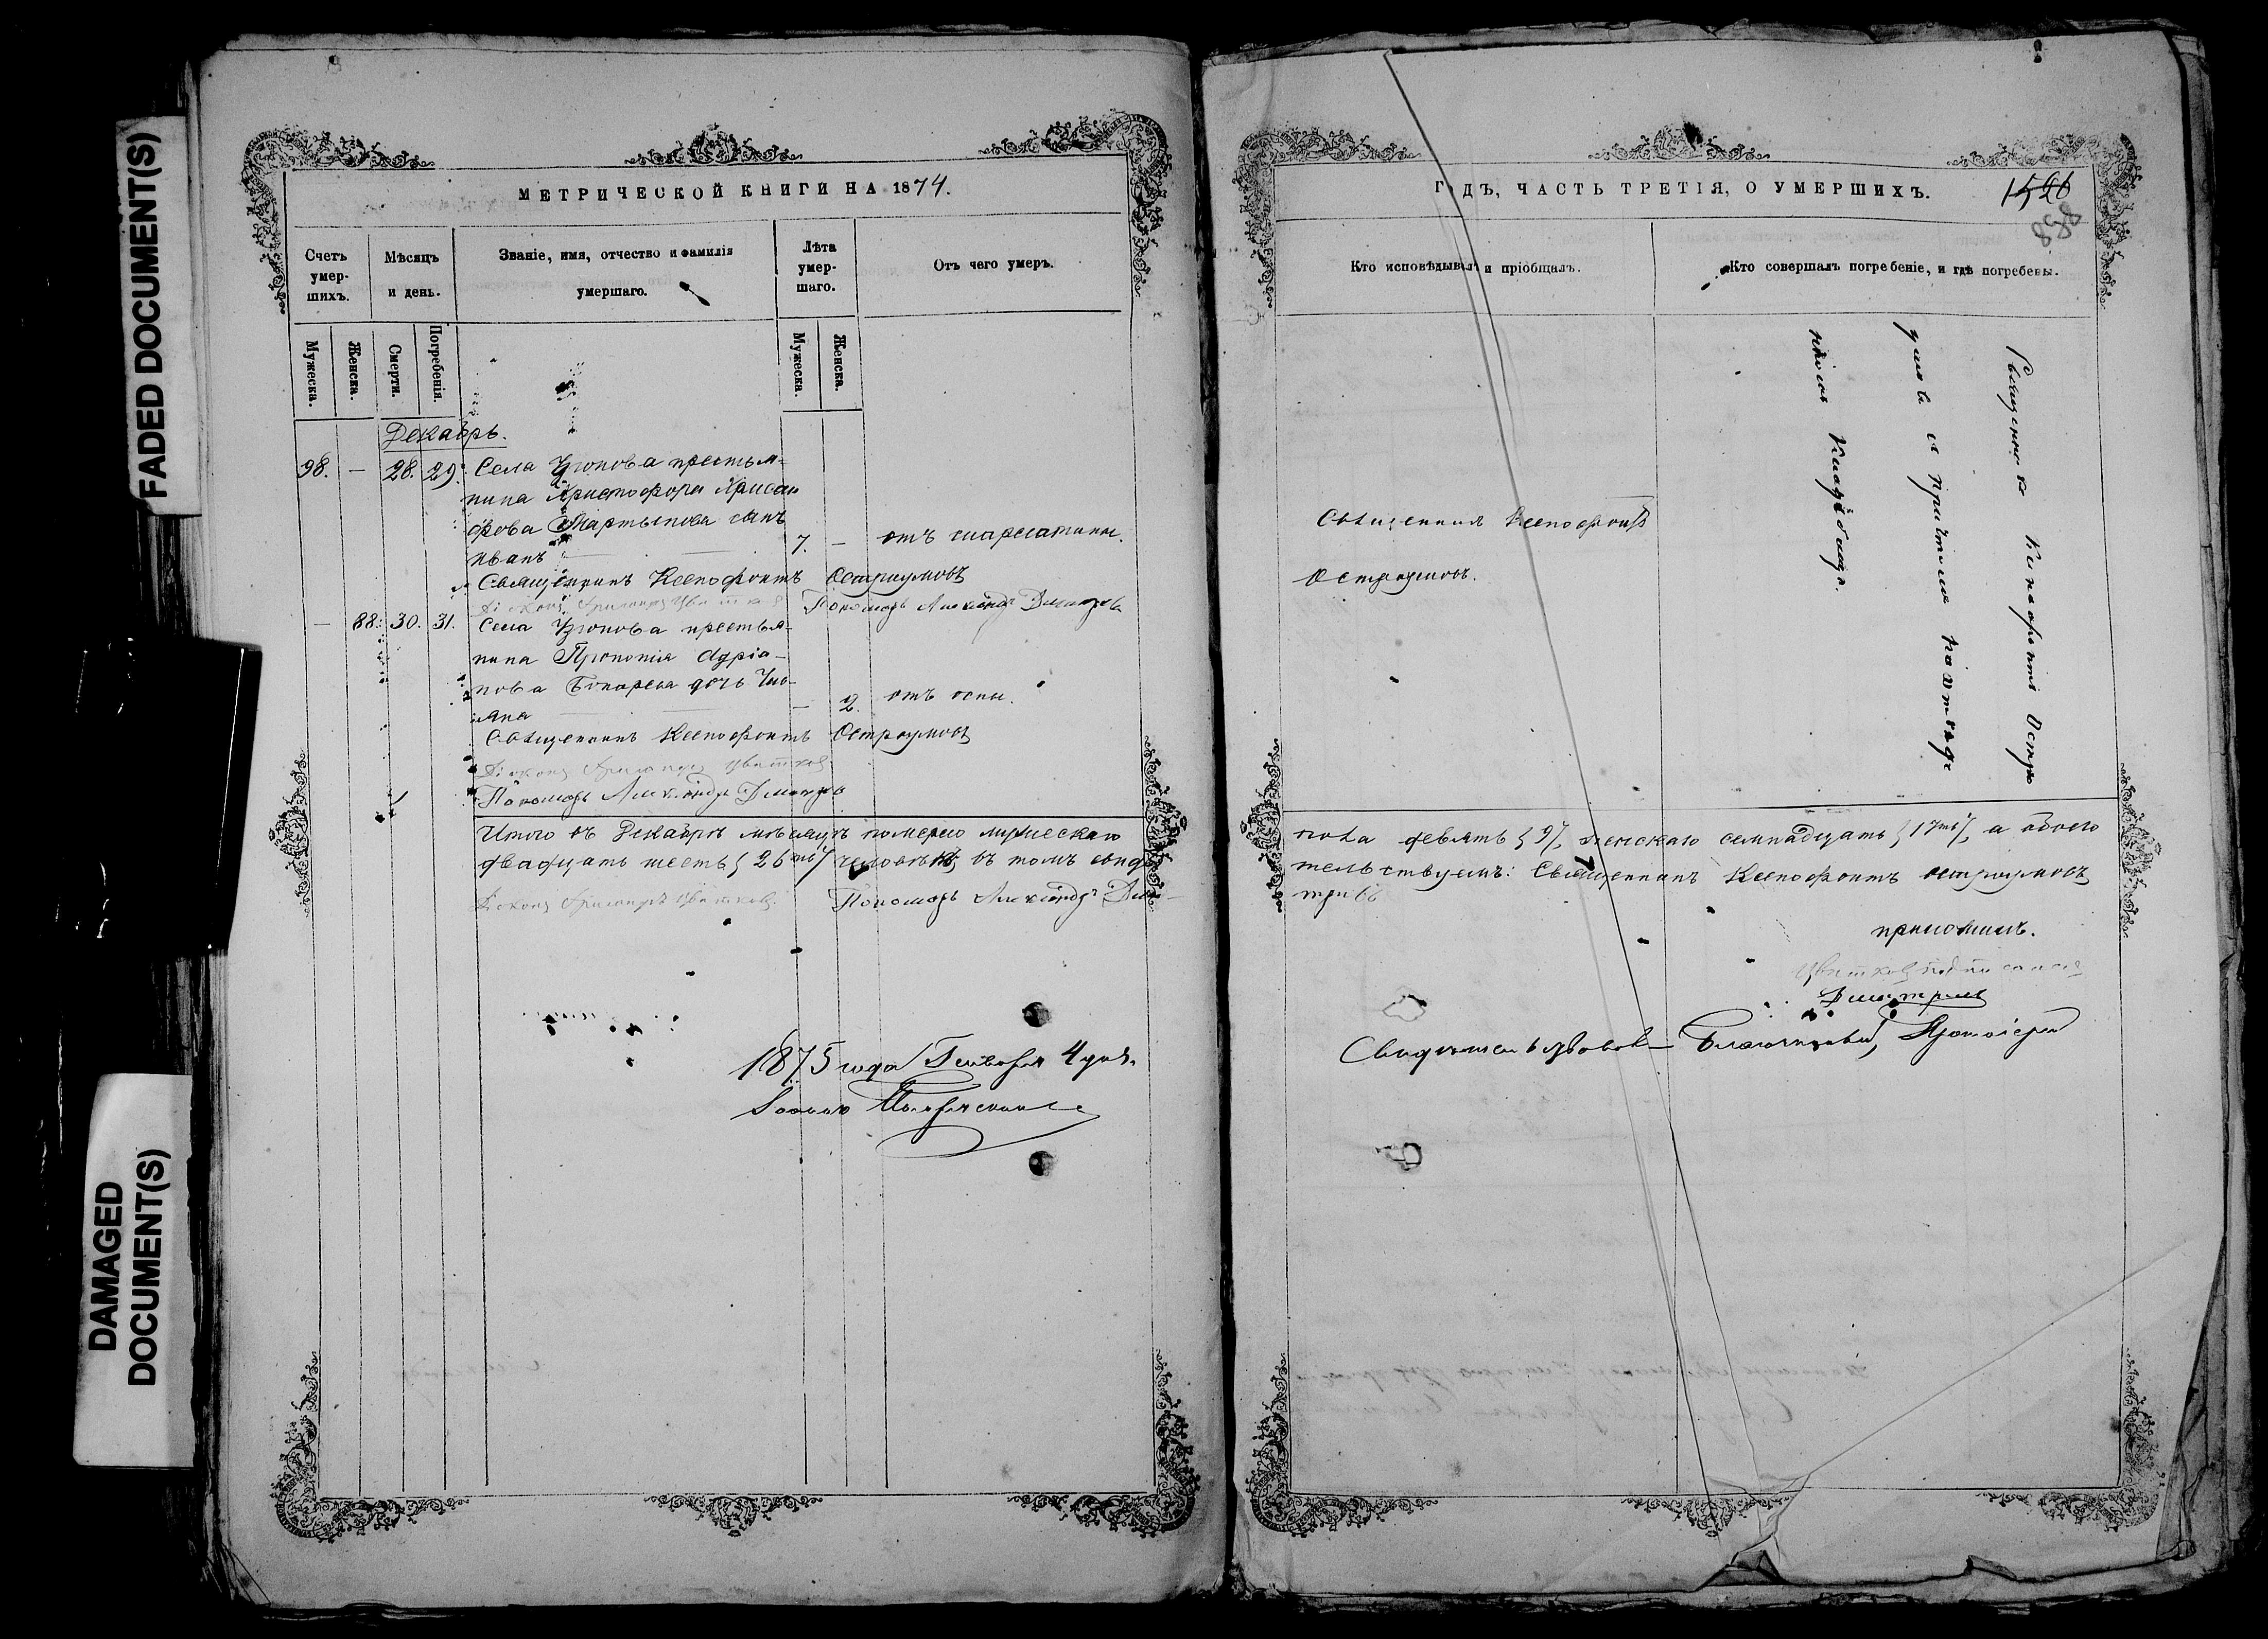 FADED DOCUMENT(S)
DAMAGED
DOCUMENT(S)
МЕТРИЧЕСКОЙ КНИГИ НА 1874.
Счетъ
умер-
шихъ.
Мѣсяцъ
и день.
Званіе, имя, отчество и фамилія
умершаго.
Лѣта
умер-
шаго.
Отъ чего умеръ.
Мужеска.
Женска.
Смерти.
Погребенія.
Мужеска.
Женска.
Декабрь.
98. — 28. 29. Села Узюкова крестья-
нина Христофора Хрисан
фова Мартынова сынъ
Иванъ 7. — отъ
Священникъ Ксенофонтъ Остроумовъ
Діаконъ Цвѣтковъ Пономарь Александръ Дмитріевъ
— 88. 30. 31. Села Узюкова крестья-
нина Прокопія Адріа-
нова дочь Улі-
яна — 2. отъ оспы.
Священникъ Ксенофонтъ Остроумовъ
Діаконъ Цвѣтковъ
Пономарь Александръ Дмитріевъ
Итого въ Декабрѣ мѣсяцѣ померло мужескаго
двадцать шесть 26ть человѣкъ въ томъ свидѣ
Діаконъ Пономарь Александръ Дми-
1875 года Генваря 4 дня.
ГОДЪ, ЧАСТЬ ТРЕТІЯ, О УМЕРШИХЪ.
1526
858
Кто исповѣдывалъ и пріобщалъ.
Кто совершалъ погребеніе, и гдѣ погребены.
Священникъ Ксенофонтъ
Остроумовъ.
Священникъ Ксенофонтъ Остро
умовъ съ причтомъ на отведе
нномъ кладбищѣ.
пола девять 9, женскаго семнадцать 17ть, а обоего
тельствуемъ: Священникъ Ксенофонтъ Остроумовъ
тріевъ
приложилъ.
Цвѣтковъ подписался
Дмитріевъ
Свидѣтельствовалъ Благочинный, Протоіерей